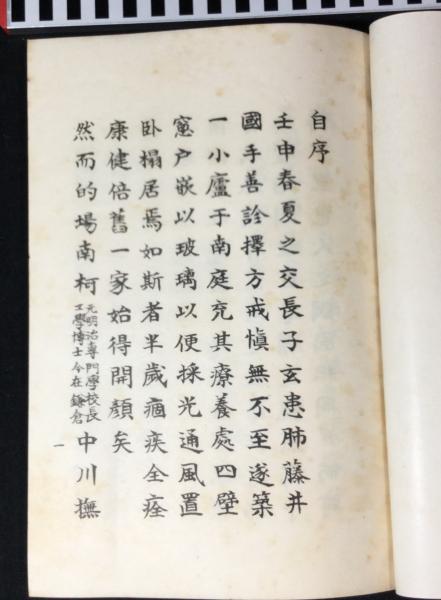 自序
壬申春夏之交長子玄患肺藤井
國手善詮擇方戒愼無不至遂築
一小廬于南庭充其療養處四壁
窓戸嵌以玻璃以便採光通風置
卧榻居焉如斯者半歲痼疾全痊
康健倍舊一家始得開顏矣
然而的場南柯元明治專門學校長工學博士今在鎌倉中川撫
一